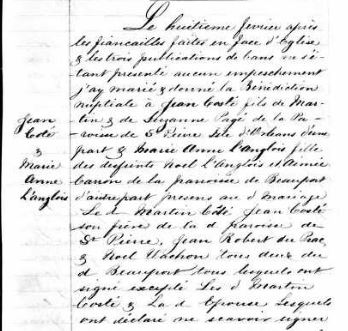 Le huitieme fevrier après
les fiancailles faites en face d'Eglise
& les trois publications de bans ne s'é-
tant presenté aucun empeschement
j'ay marié & donné la Bénédiction
nuptiale à Jean Costé fils de Mar-
tin & de Suzanne Pagé de la Pa-
roisse de St Pierre Isle d'Orleans d'une
part & Marie Anne L'anglois fille
des deffints Noel L'Anglois et Aimée
Caron de la paroisse de Beauport
d'autrepart presens au d Mariage
Le d Martin Côté, Jean Costé
son frere de la d paroisse de
St Pierre, Jean Robert du Prac
& Noel Vachon tous deux du
d Beauport tous lesquels ont
signé excepté Les d Martin
Costé & La d Epouse Lesquels
ont déclaré ne scavoir signer
Jean
Coté
&
Marie
Anne
L'anglois